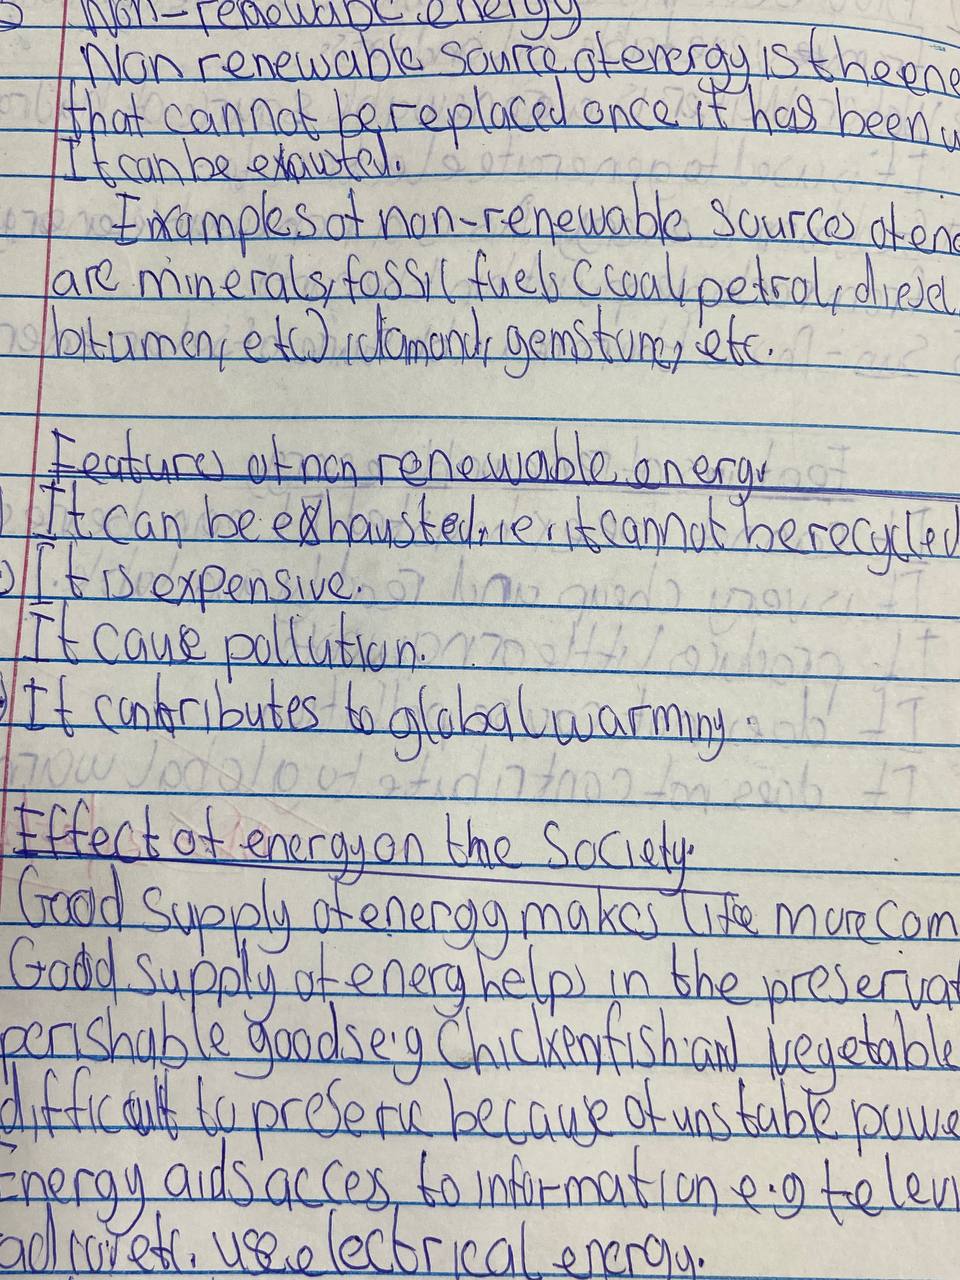 Non-renewable energy
Non renewable source of energy is the ene
that cannot be replaced once it has been u
It can be exausted.
Examples of non-renewable sources of ene
are minerals, fossil fuels (coal, petrol, diesel,
bitumen, etc), diamond, gemstone, etc.
Features of non renewable energy
It can be exhausted, i.e. it cannot be recycled
It is expensive.
It cause pollution.
It contributes to global warming.
Effect of energy on the Society.
Good supply of energy makes life more com
Good supply of energy helps in the preservat
perishable goods e.g Chicken, fish and vegetable
difficult to preserve because of unstable powe
Energy aids access to information, e.g televi
adio, etc. use electrical energy.